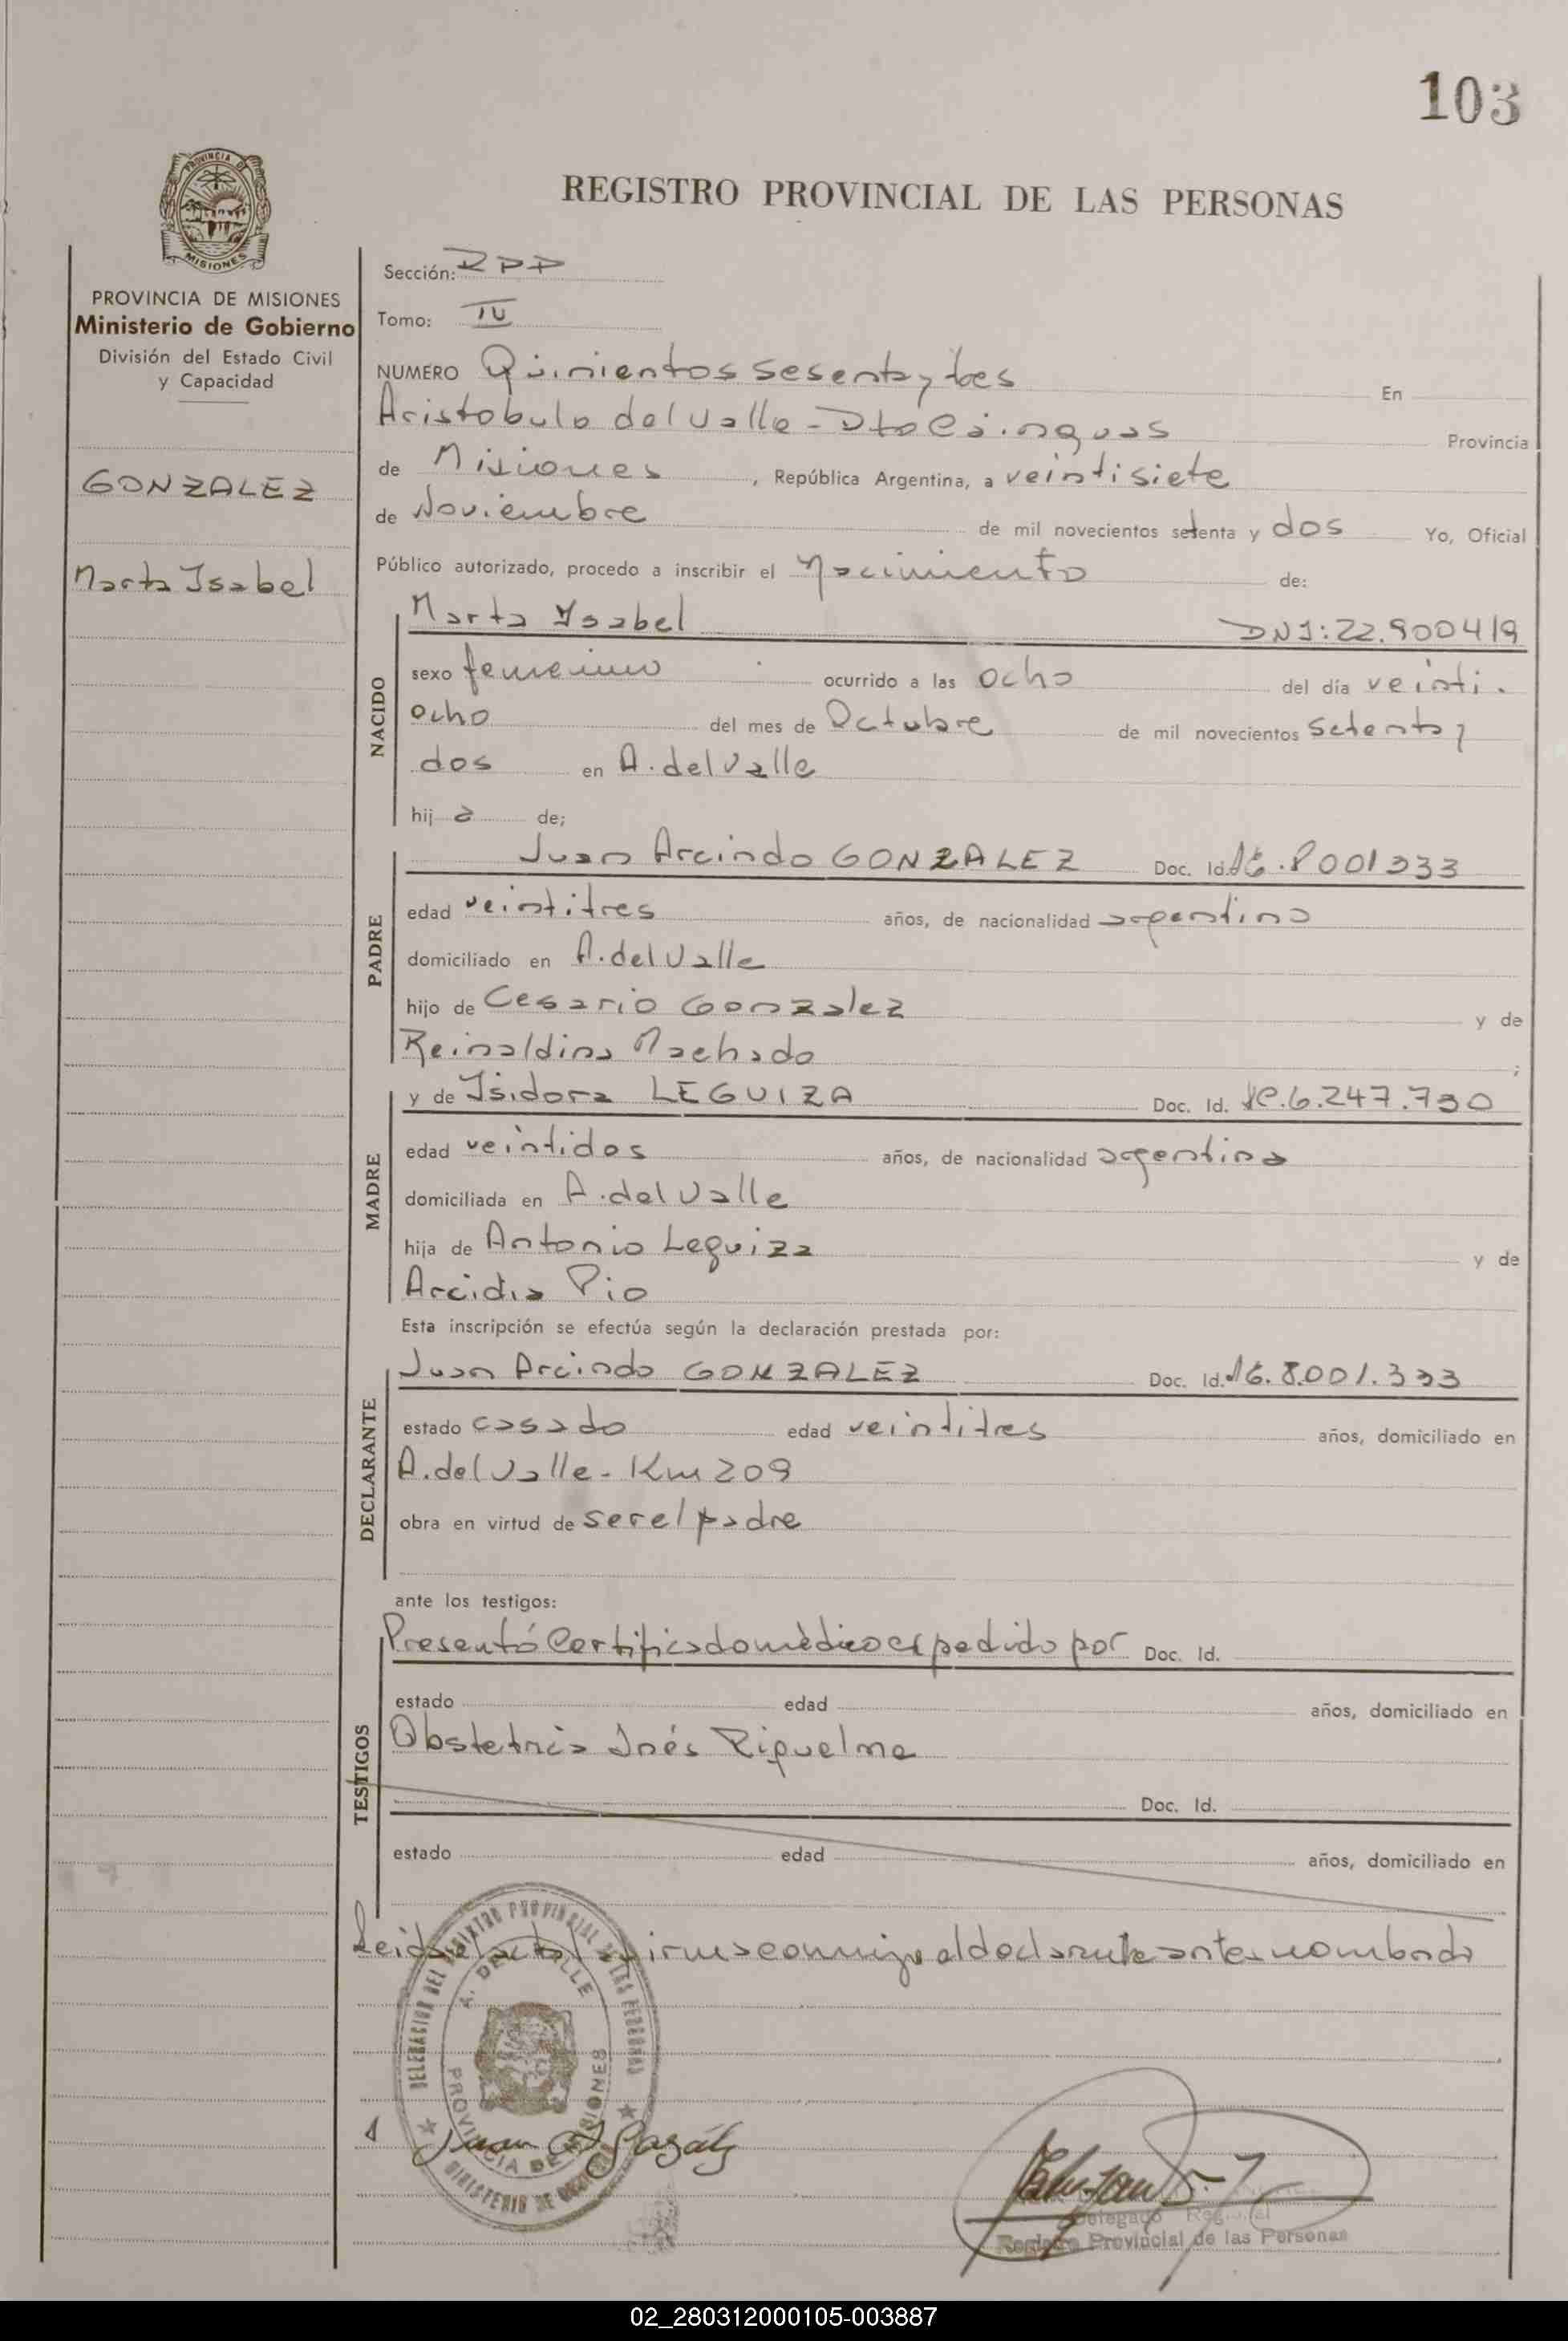 103
PROVINCIA DE
MISIONES
REGISTRO PROVINCIAL DE LAS PERSONAS
PROVINCIA DE MISIONES
Ministerio de Gobierno
División del Estado Civil
y Capacidad
GONZALEZ
Marta Isabel
Sección: RPP
Tomo: IV
NUMERO Quinientos sesenta y tres En
Aristobulo del Valle - Dto Cainguas Provincia
de Misiones, República Argentina, a veintisiete
de Noviembre de mil novecientos setenta y dos Yo, Oficial
Público autorizado, procedo a inscribir el Nacimiento de:
NACIDO
Marta Ysabel DNI: 22.900419
sexo femenino ocurrido a las ocho del día veinti.
ocho del mes de Octubre de mil novecientos setenta y
dos en A. del Valle
hij a de;
PADRE
Juan Arcindo GONZALEZ Doc. Id. 8001333
edad veintitres años, de nacionalidad argentino
domiciliado en A. del Valle
hijo de Cesario Gonzalez y de
Reinaldina Machado ;
MADRE
y de Isidora LEGUIZA Doc. Id. 6.247.730
edad veintidos años, de nacionalidad argentina
domiciliada en A. del Valle
hija de Antonio Leguiza y de
Arcidia Pio
Esta inscripción se efectúa según la declaración prestada por:
DECLARANTE
Juan Arcindo GONZALEZ Doc. Id. 8.001.333
estado casado edad veintitres años, domiciliado en
A. del Valle - Km 209
obra en virtud de ser el padre
ante los testigos:
TESTIGOS
Presentó Certificado mèdico expedido por Doc. Id.
estado edad años, domiciliado en
Obstetricia Inés Riquelme
Doc. Id.
estado edad años, domiciliado en
Leida el acta la firma conmigo el declarante antes nombrado
DELEGACION DEL REGISTRO PROVINCIAL DE LAS PERSONAS
A. DEL VALLE
PROVINCIA DE MISIONES
MINISTERIO DE GOBIERNO
Juan
Delegado Regional
Registro Provincial de las Personas
02_280312000105-003887